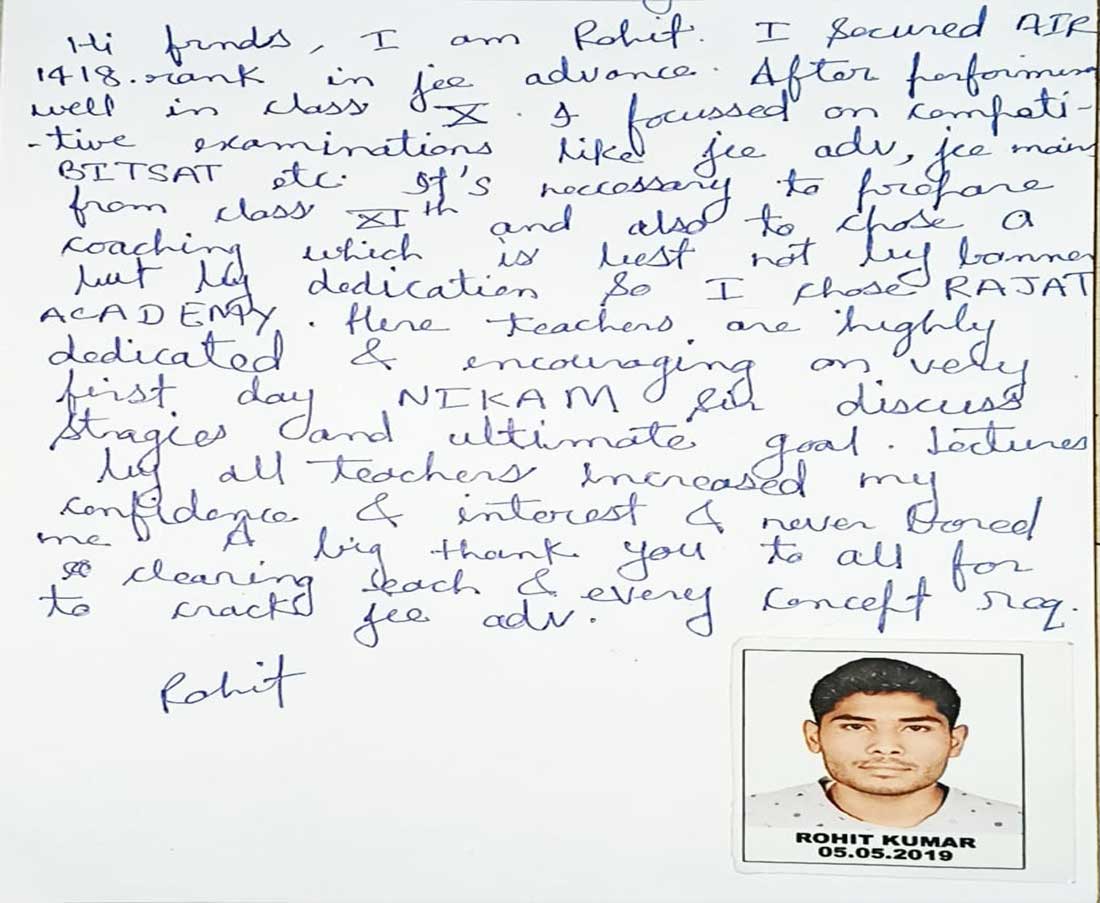 Hi frnds, I am Rohit. I Secured AIR
1418.rank in jee advance. After performing
well in class X. I focussed on competi-
-tive examinations like jee adv, jee mains
BITSAT etc. It's neccessary to prepare
from class XIth and also to chose a
coaching which is best not by banner
but by dedication So I chose RAJAT
ACADEMY. Here teachers are highly
dedicated & encouraging on very
first day NIKAM sir discuss
stragies and ultimate goal. Lectures
by all teachers increased my
confidence & interest & never Bored
me A big thank you to all for
clearing each & every concept req.
to crack jee adv.
Rohit
ROHIT KUMAR
05.05.2019